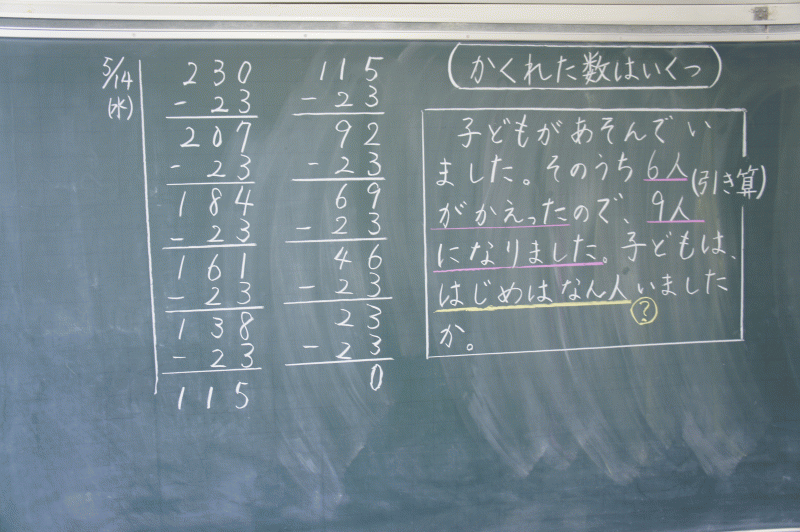 5/14
(水)
230
- 23
207
- 23
184
- 23
161
- 23
138
- 23
115
115
- 23
92
- 23
69
- 23
46
- 23
23
- 23
0
かくれた数はいくつ
子どもがあそんでい
ました。そのうち6人
(引き算)
がかえったので、9人
になりました。子どもは、
はじめはなん人いました
?
か。